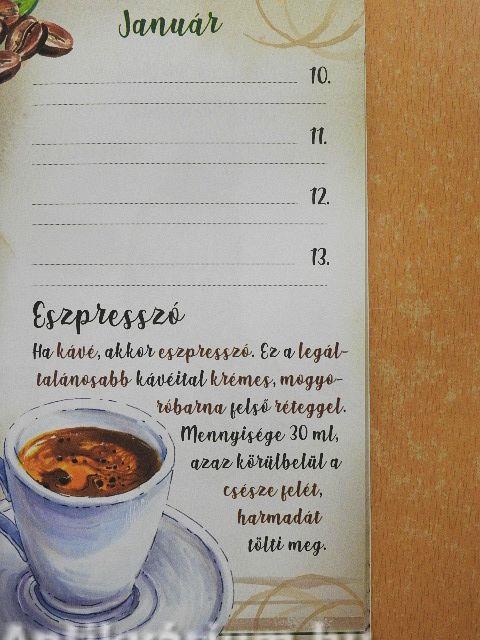 Január
10.
11.
12.
13.
Eszpresszó
Ha kávé, akkor eszpresszó. Ez a legál-
talánosabb kávéital krémes, mogyo-
róbarna felső réteggel.
Mennyisége 30 ml,
azaz körülbelül a
csésze felét,
harmadát
tölti meg.